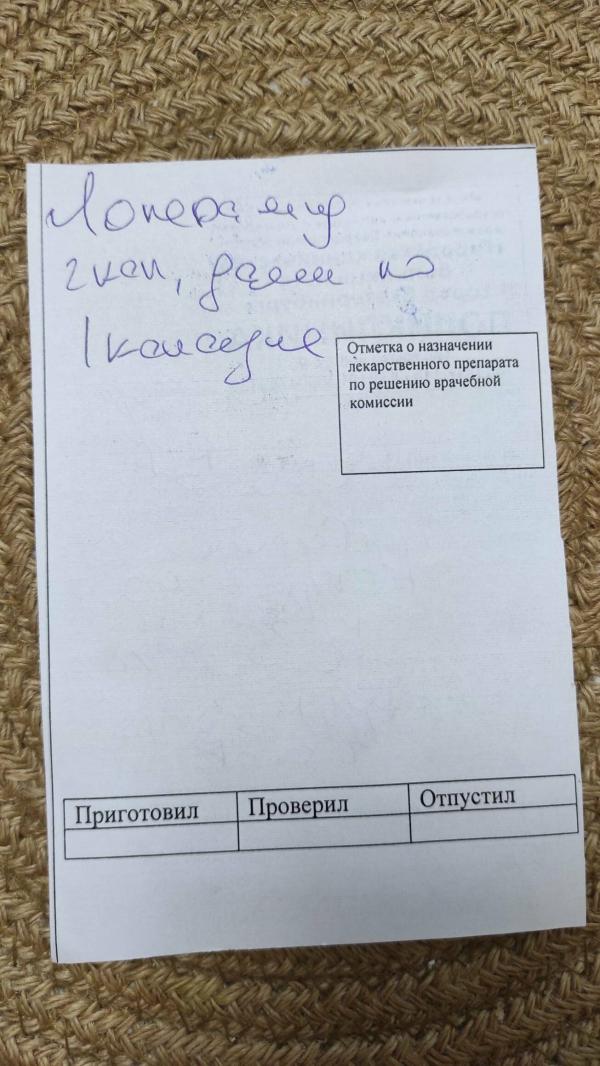 Лоперамид
2 кап, далее по
1 капсуле
Отметка о назначении
лекарственного препарата
по решению врачебной
комиссии
Приготовил Проверил Отпустил